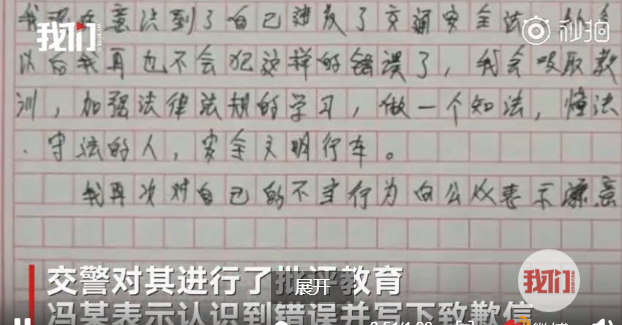 我们
秒拍
意识到了自己违反了交通安全法
以后我再也不会犯这样的错误了，我会吸取教
训，加强法律法规的学习，做一个知法，懂法
、守法的人，安全文明行车。
我再次对自己的不当行为向公众表示歉意
我们
交警对其进行了批评教育
展开
冯某表示认识到错误并写下致歉信